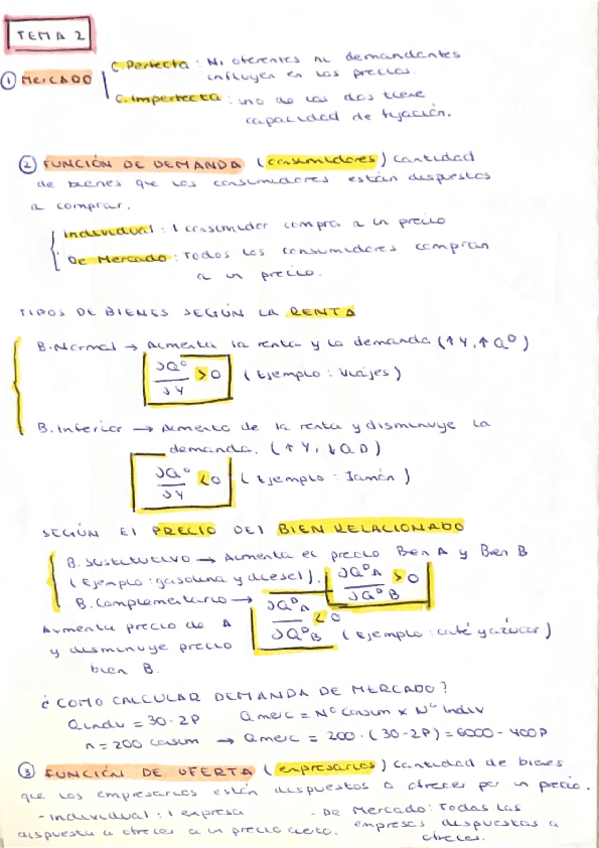 TEMA 2
① MERCADO
C. Perfecta : Ni oferentes ni demandantes
influyen en los precios.
C. Imperfecta : uno de los dos tiene
capacidad de fijación.
② FUNCIÓN DE DEMANDA (consumidores) Cantidad
de bienes que los consumidores están dispuestos
a comprar.
Individual : 1 consumidor compra a un precio
De Mercado : Todos los consumidores compran
a un precio.
TIPOS DE BIENES SEGÚN LA RENTA
B. Normal → Aumenta la renta y la demanda (↑ Y, ↑ Qᴰ)
∂Qᴰ / ∂Y > 0 (Ejemplo : Viajes)
B. Inferior → Aumento de la renta y disminuye la
demanda. (↑ Y, ↓ QD)
∂Qᴰ / ∂Y < 0 (Ejemplo : Jamón)
SEGÚN El PRECIO DEl BIEN RELACIONADO
B. Sustitutivo → Aumenta el precio Bien A y Bien B
(Ejemplo : gasolina y diesel). ∂QᴰA / ∂QᴰB > 0
B. Complementario → ∂QᴰA / ∂QᴰB < 0 (Ejemplo : café y azúcar)
Aumenta precio de A
y disminuye precio
bien B.
¿COMO CALCULAR DEMANDA DE MERCADO?
Qindv = 30 - 2P Qmerc = Nº Consum x Nº Indiv
n = 200 consum → Qmerc = 200 · (30 - 2P) = 6000 - 400P
③ FUNCIÓN DE OFERTA (empresarios) Cantidad de bienes
que los empresarios están dispuestos a ofrecer por un precio.
- Individual : 1 empresa
dispuesta a ofrecer a un precio cierto.
- De Mercado : Todas las
empresas dispuestas a
ofrecer.